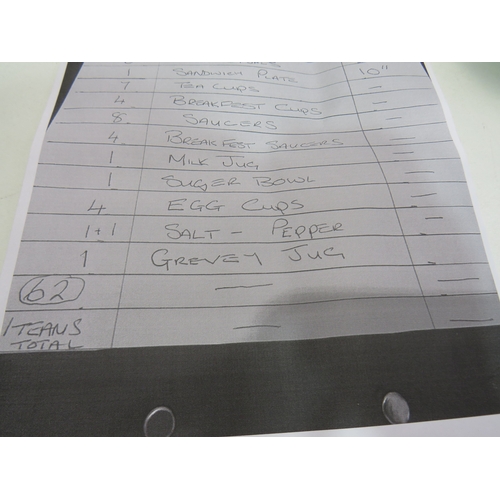 1 SANDWICH PLATE 10"
7 TEA CUPS —
4 BREAKFEST CUPS —
8 SAUCERS —
4 BREAKFEST SAUCERS —
1 MILK JUG —
1 SUGER BOWL —
4 EGG CUPS —
1+1 SALT - PEPPER —
1 GREVEY JUG —
62 — —
ITEAMS — —
TOTAL